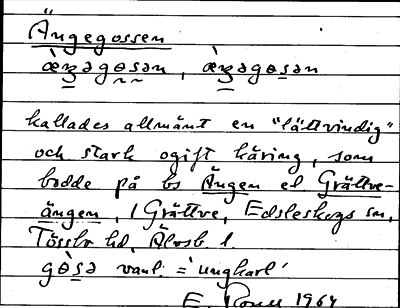 Ängegossen
æ̀ʒəgɵsən, æ̀ʒəgɵsən
kallades allmänt en "lättvindig"
och stark ogift käring, som
bodde på bs Ängen el Grättve-
ängen, i Grättve, Edsleskogs sn,
Tössbo hd, Älvsb. l.
gɵ̀sə vanl. = 'ungkarl'
E. 1964